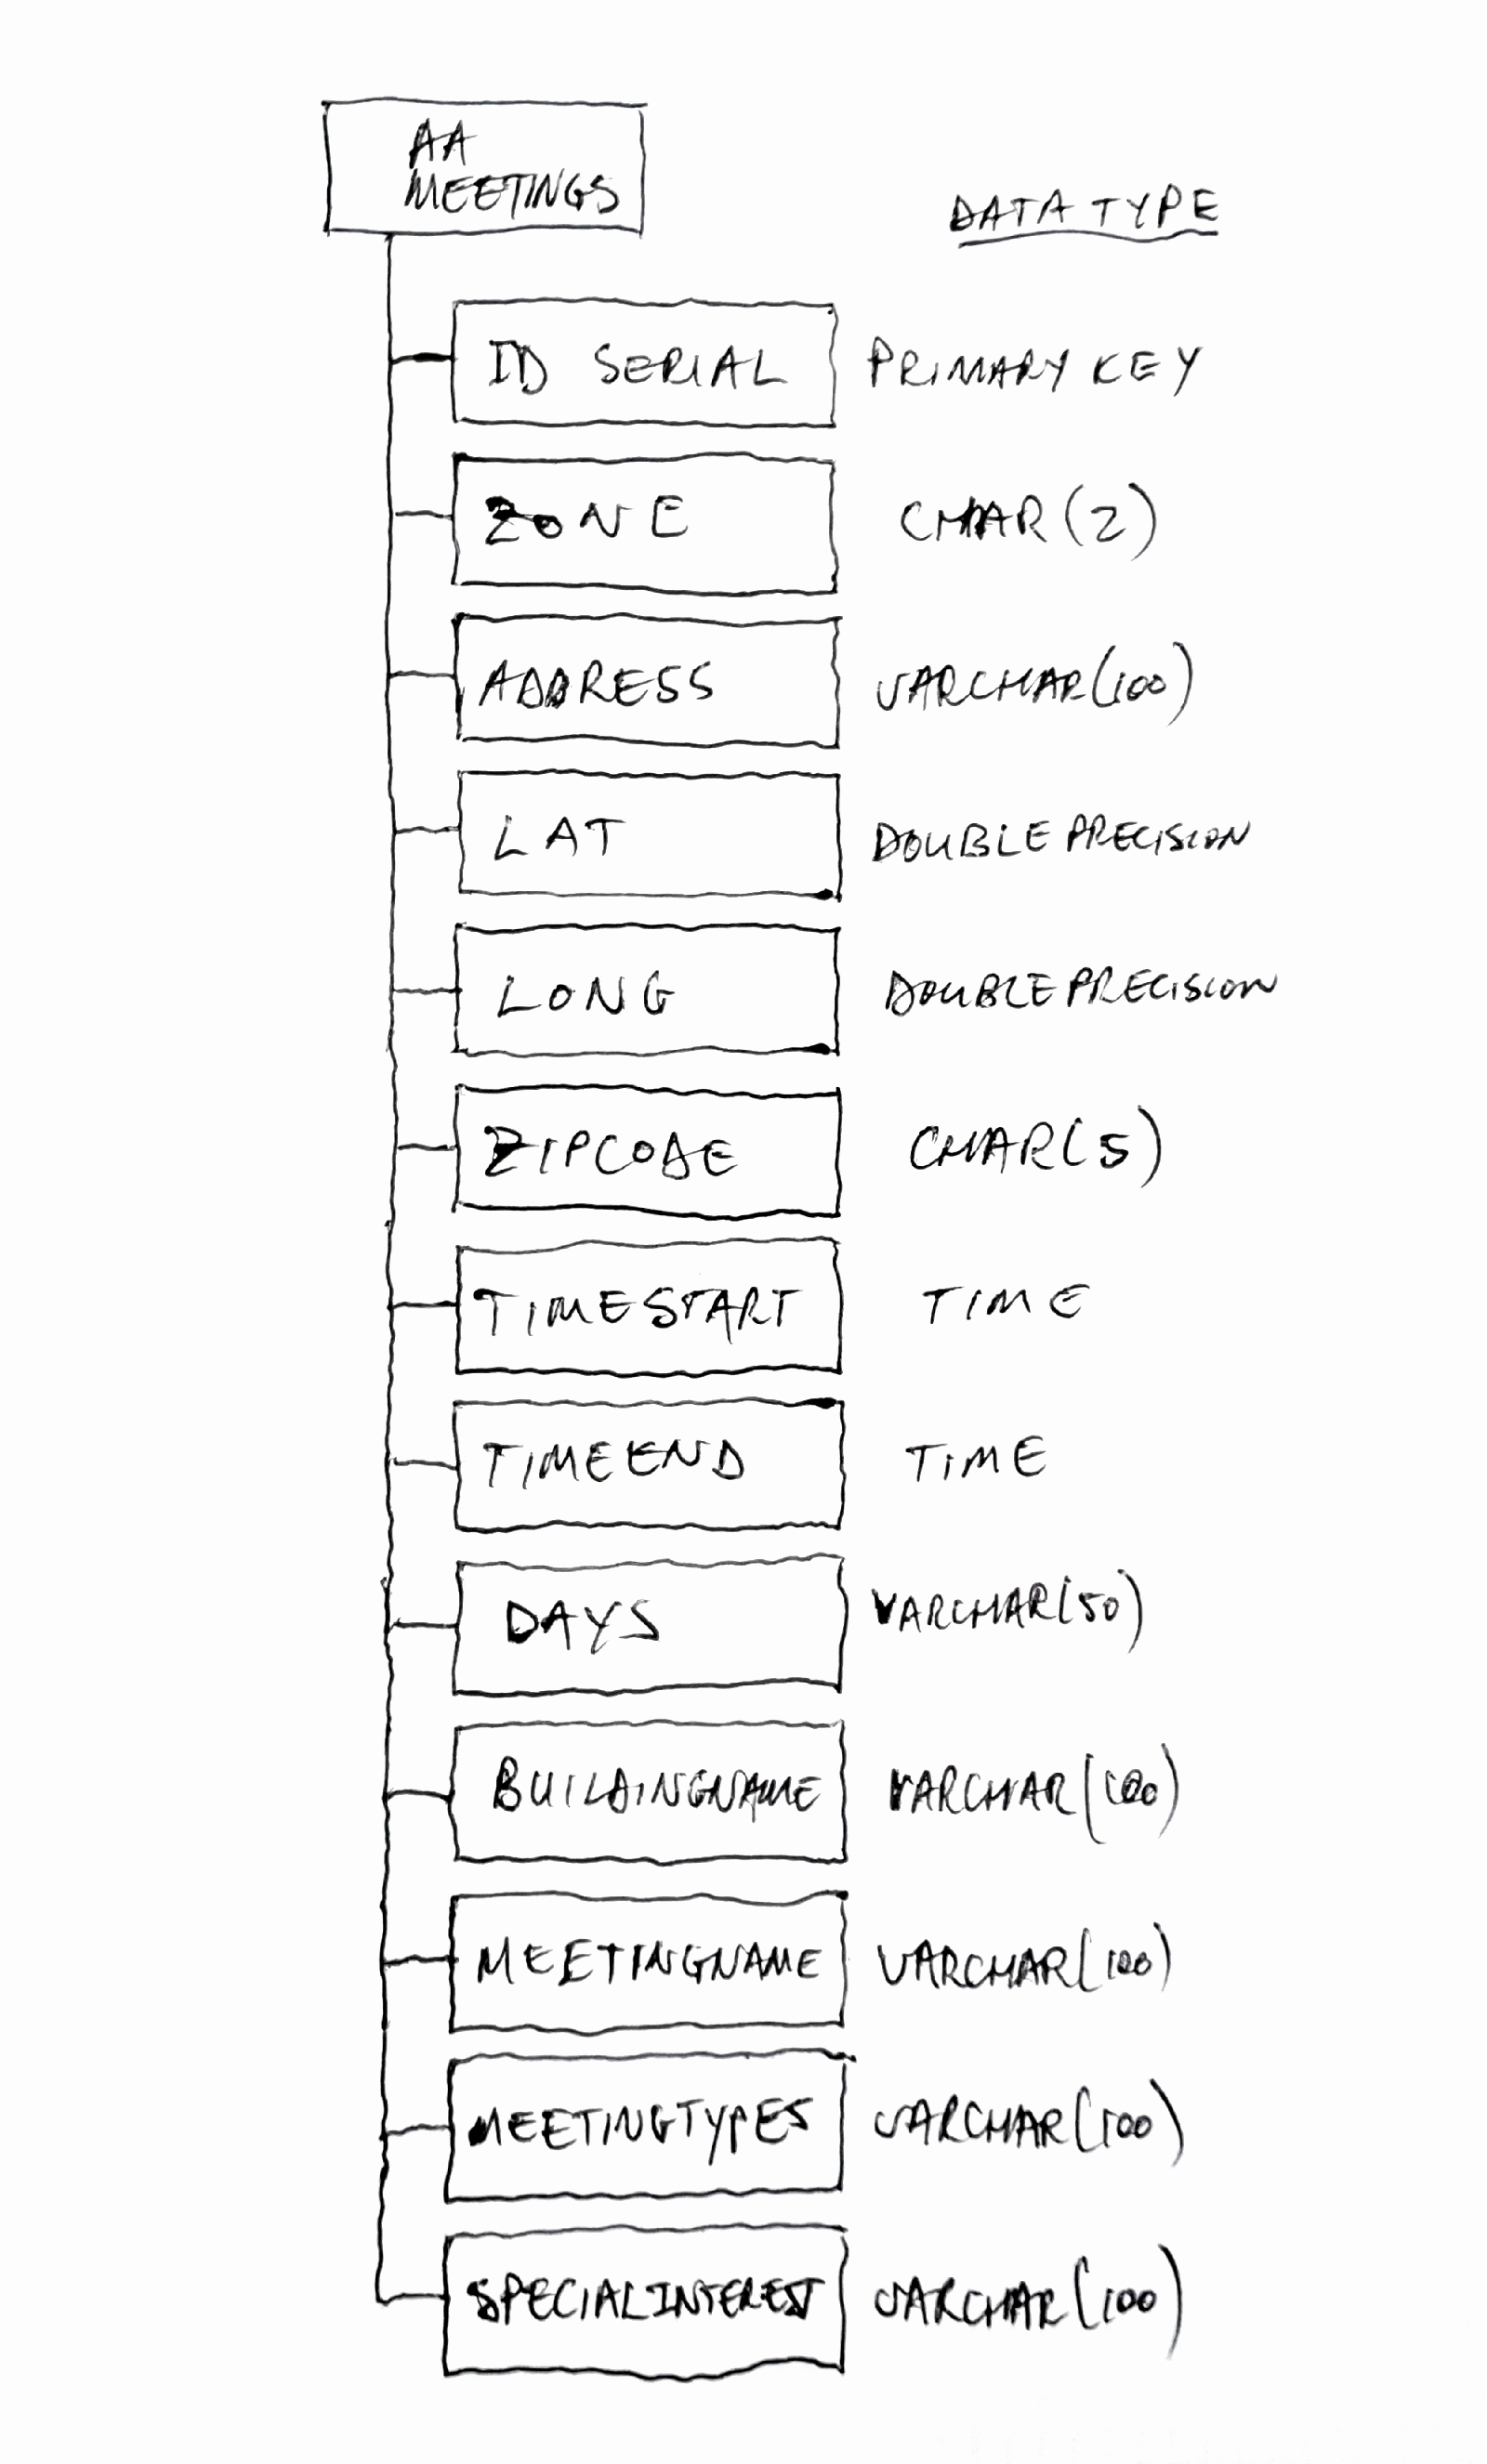 AA
MEETINGS
DATA TYPE
ID SERIAL PRIMARY KEY
ZONE CHAR(2)
ADDRESS VARCHAR(100)
LAT DOUBLE PRECISION
LONG DOUBLE PRECISION
ZIPCODE CHAR(5)
TIMESTART TIME
TIMEEND TIME
DAYS VARCHAR(50)
BUILDINGNAME VARCHAR(100)
MEETINGNAME VARCHAR(100)
MEETINGTYPES VARCHAR(100)
SPECIALINTEREST VARCHAR(100)